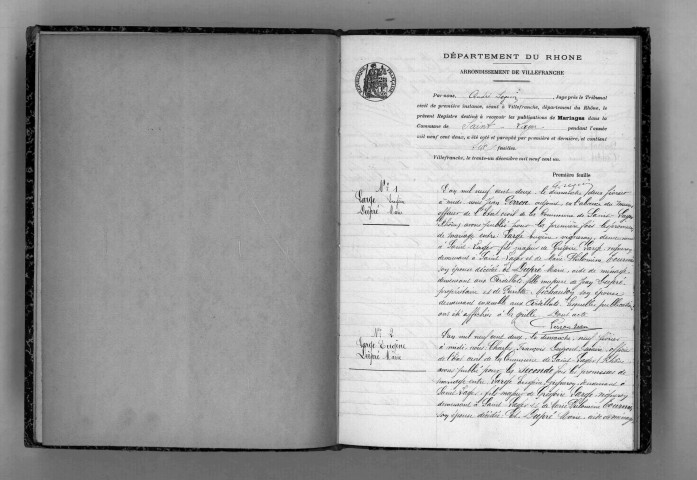 DÉPARTEMENT DU RHONE
ARRONDISSEMENT DE VILLEFRANCHE
Par nous, André, Juge près le Tribunal
civil de première instance, séant à Villefranche, département du Rhône, le
présent Registre destiné à recevoir les publications de Mariages dans la
Commune de Saint Lager pendant l'année
mil neuf cent deux, a été coté et paraphé par première et dernière, et contient
feuilles.
Villefranche, le trente-un décembre mil neuf cent un.
Première feuille
N° 1
Large Eugène
Dupré Marie
L'an mil neuf cent deux, le dimanche deux février
à midi, nous Jean Perron adjoint, en l'absence du maire
officier de l'Etat civil de la Commune de Saint Lager
(Rhône) avons publié pour la première fois la promesse
de mariage entre Large Eugène vigneron, demeurant
à Saint Lager, fils majeur de Grégoire Large vigneron
demeurant à Saint Lager et de Marie Philomène
son épouse décédée, et Dupré Marie, aide de ménage,
demeurant aux Ardillats fille majeure de Jean Dupré,
propriétaire et de son épouse
demeurant ensemble aux Ardillats. Lesquelles publications
ont été affichées à la grille. Dont acte
Perron Jean
N° 2
Large Eugène
Dupré Marie
L'an mil neuf cent deux, le dimanche, neuf février
à midi, nous Charles François officier
de l'état civil de la Commune de Saint Lager (Rhône)
avons publié pour la seconde fois la promesse de
mariage entre Large Eugène vigneron, demeurant à
Saint Lager, fils majeur de Grégoire Large vigneron
demeurant à Saint Lager et de Marie Philomène
son épouse décédée et Dupré Marie, aide de ménage